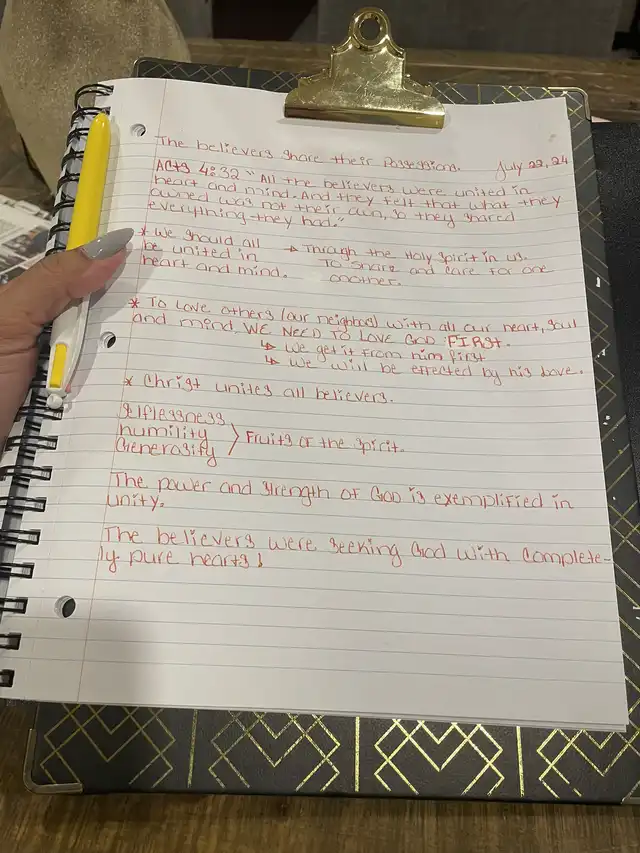 The believers share their Possessions. July 22, 24
Acts 4:32 "All the believers were united in
heart and mind. And they felt that what they
owned was not their own, so they shared
everything they had."
* We should all
be united in
heart and mind.
→ Through the Holy Spirit in us.
To share and care for one
another.
* To Love others (our neighbor) with all our heart, soul
and mind WE NEED TO LOVE GOD FIRST.
↳ we get it from him first
↳ we will be effected by his love.
* Christ unites all believers.
Selflessness
humility
Generosity
} Fruits of the Spirit.
The power and strength of God is exemplified in
unity.
The believers were seeking God with complete-
ly pure hearts!